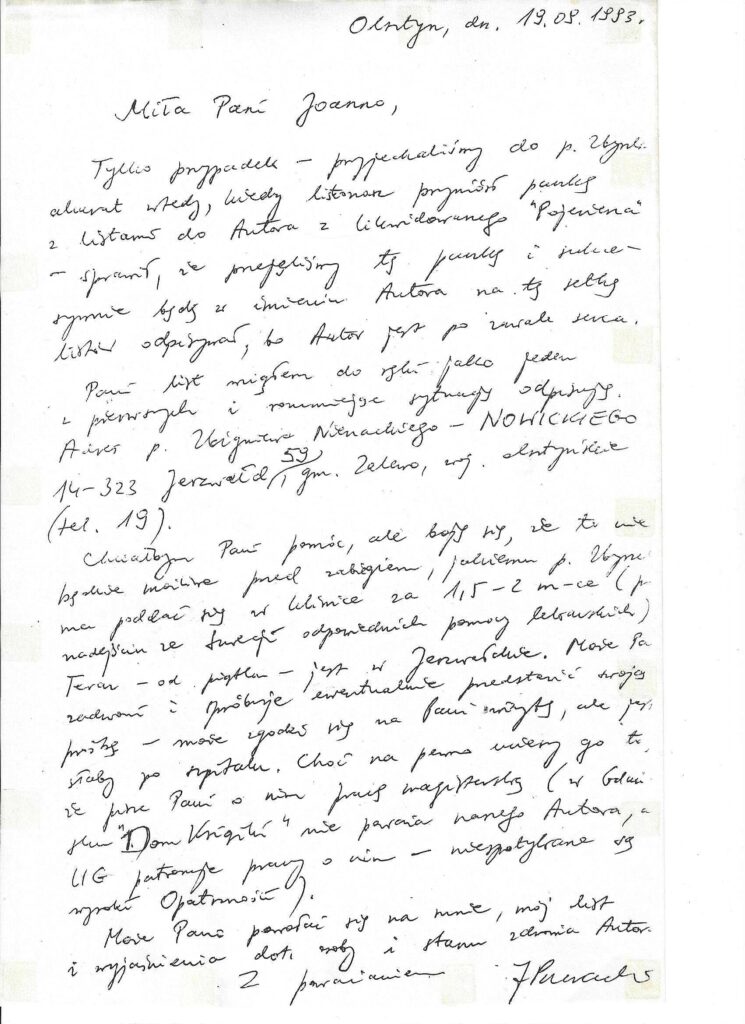 Olsztyn, dn. 19.09.1993.
Miła Pani Joanno,
Tylko przypadek – przyjechaliśmy do p. Zbyszka
akurat wtedy, kiedy listonosz przyniósł paczkę
z listami do Autora z likwidowanego "Pojezierza"
– sprawił, że przejęliśmy tę paczkę i sukce-
sywnie będę w imieniu Autora na tę setkę
listów odpisywał, bo Autor jest po zawale serca.
Pani list wziąłem do ręki jako jeden
z pierwszych i rozumiejąc sytuację odpisuję.
Adres p. Zbigniewa Nienackiego – NOWICKIEGO
14-323 Jerzwałd 59, gm. Zalewo, woj. olsztyńskie
(tel. 19).
Chciałbym Pani pomóc, ale boję się, że to nie
będzie możliwe przed zabiegiem, jakiemu p. Zbyszek
ma poddać się w klinice za 1,5–2 m-ce (p
nadejściu ze Szwecji odpowiednich pomocy lekarskich)
Teraz – od piątku – jest w Jerzwałdzie. Może Pa
zadzwoni i spróbuje ewentualnie przedstawić swoją
prośbę – może zgodzi się na Pani wizytę, ale jest
słaby po szpitalu. Choć na pewno ucieszy go to,
że pisze Pani o nim pracę magisterską (w Gdań
sku "Dom Książki" nie poważa naszego Autora, a
UG patronuje pracy o nim – niespotykane są
wyroki Opatrzności).
Może Pani powołać się na mnie, mój list
i wyjaśnienia dot. osoby i stanu zdrowia Autora.
Z poważaniem